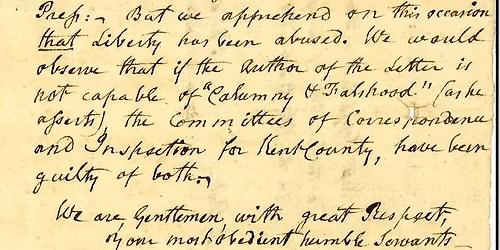 Press:- But we apprehend on this occasion
that Liberty has been abused. We would
observe that if the Author of the Letter is
not capable of "Calumny & Falshood" (as he
asserts), the Committees of Correspondence
and Inspection for Kent County, have been
guilty of both.-
We are Gentlemen, with great Respect,
Your most obedient humble Servants